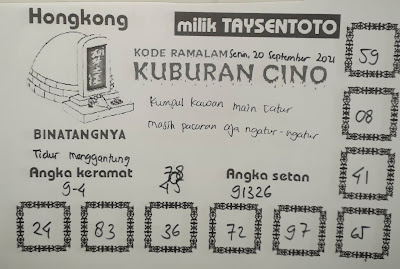 Hongkong
milik TAYSENTOTO
KODE RAMALAM Senin, 20 September 2021
KUBURAN CINO
59
Kumpul kawan main catur
08
masih pacaran aja ngatur-ngatur
BINATANGNYA
Tidur menggantung
Angka keramat
9-4
Angka setan
91326
41
24
83
36
72
97
65